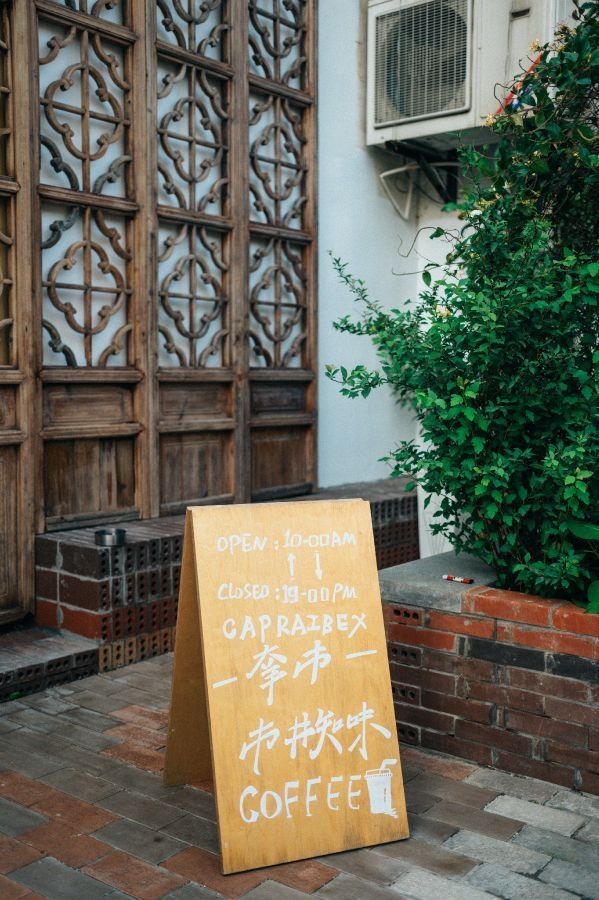 OPEN : 10-00AM
CLOSED : 19-00PM
CAPRAIBEX
— 李市 —
市井知味
COFFEE